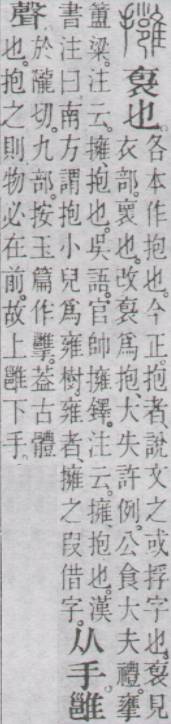 袌也。
各本作抱也。今正。抱者、說文之或捊字也。袌見
衣部。褱也。改袌爲抱、大失許例。公食大夫禮。
簠梁。注云。擁、抱也。吳語。官帥擁鐸。注云。擁、抱也。漢
書注曰。南方謂抱小兒爲雍樹。雍者、擁之叚借字。
从手雝
聲
於隴切。九部。按玉篇作 。葢古體
也。抱之則物必在前。故上雝下手。